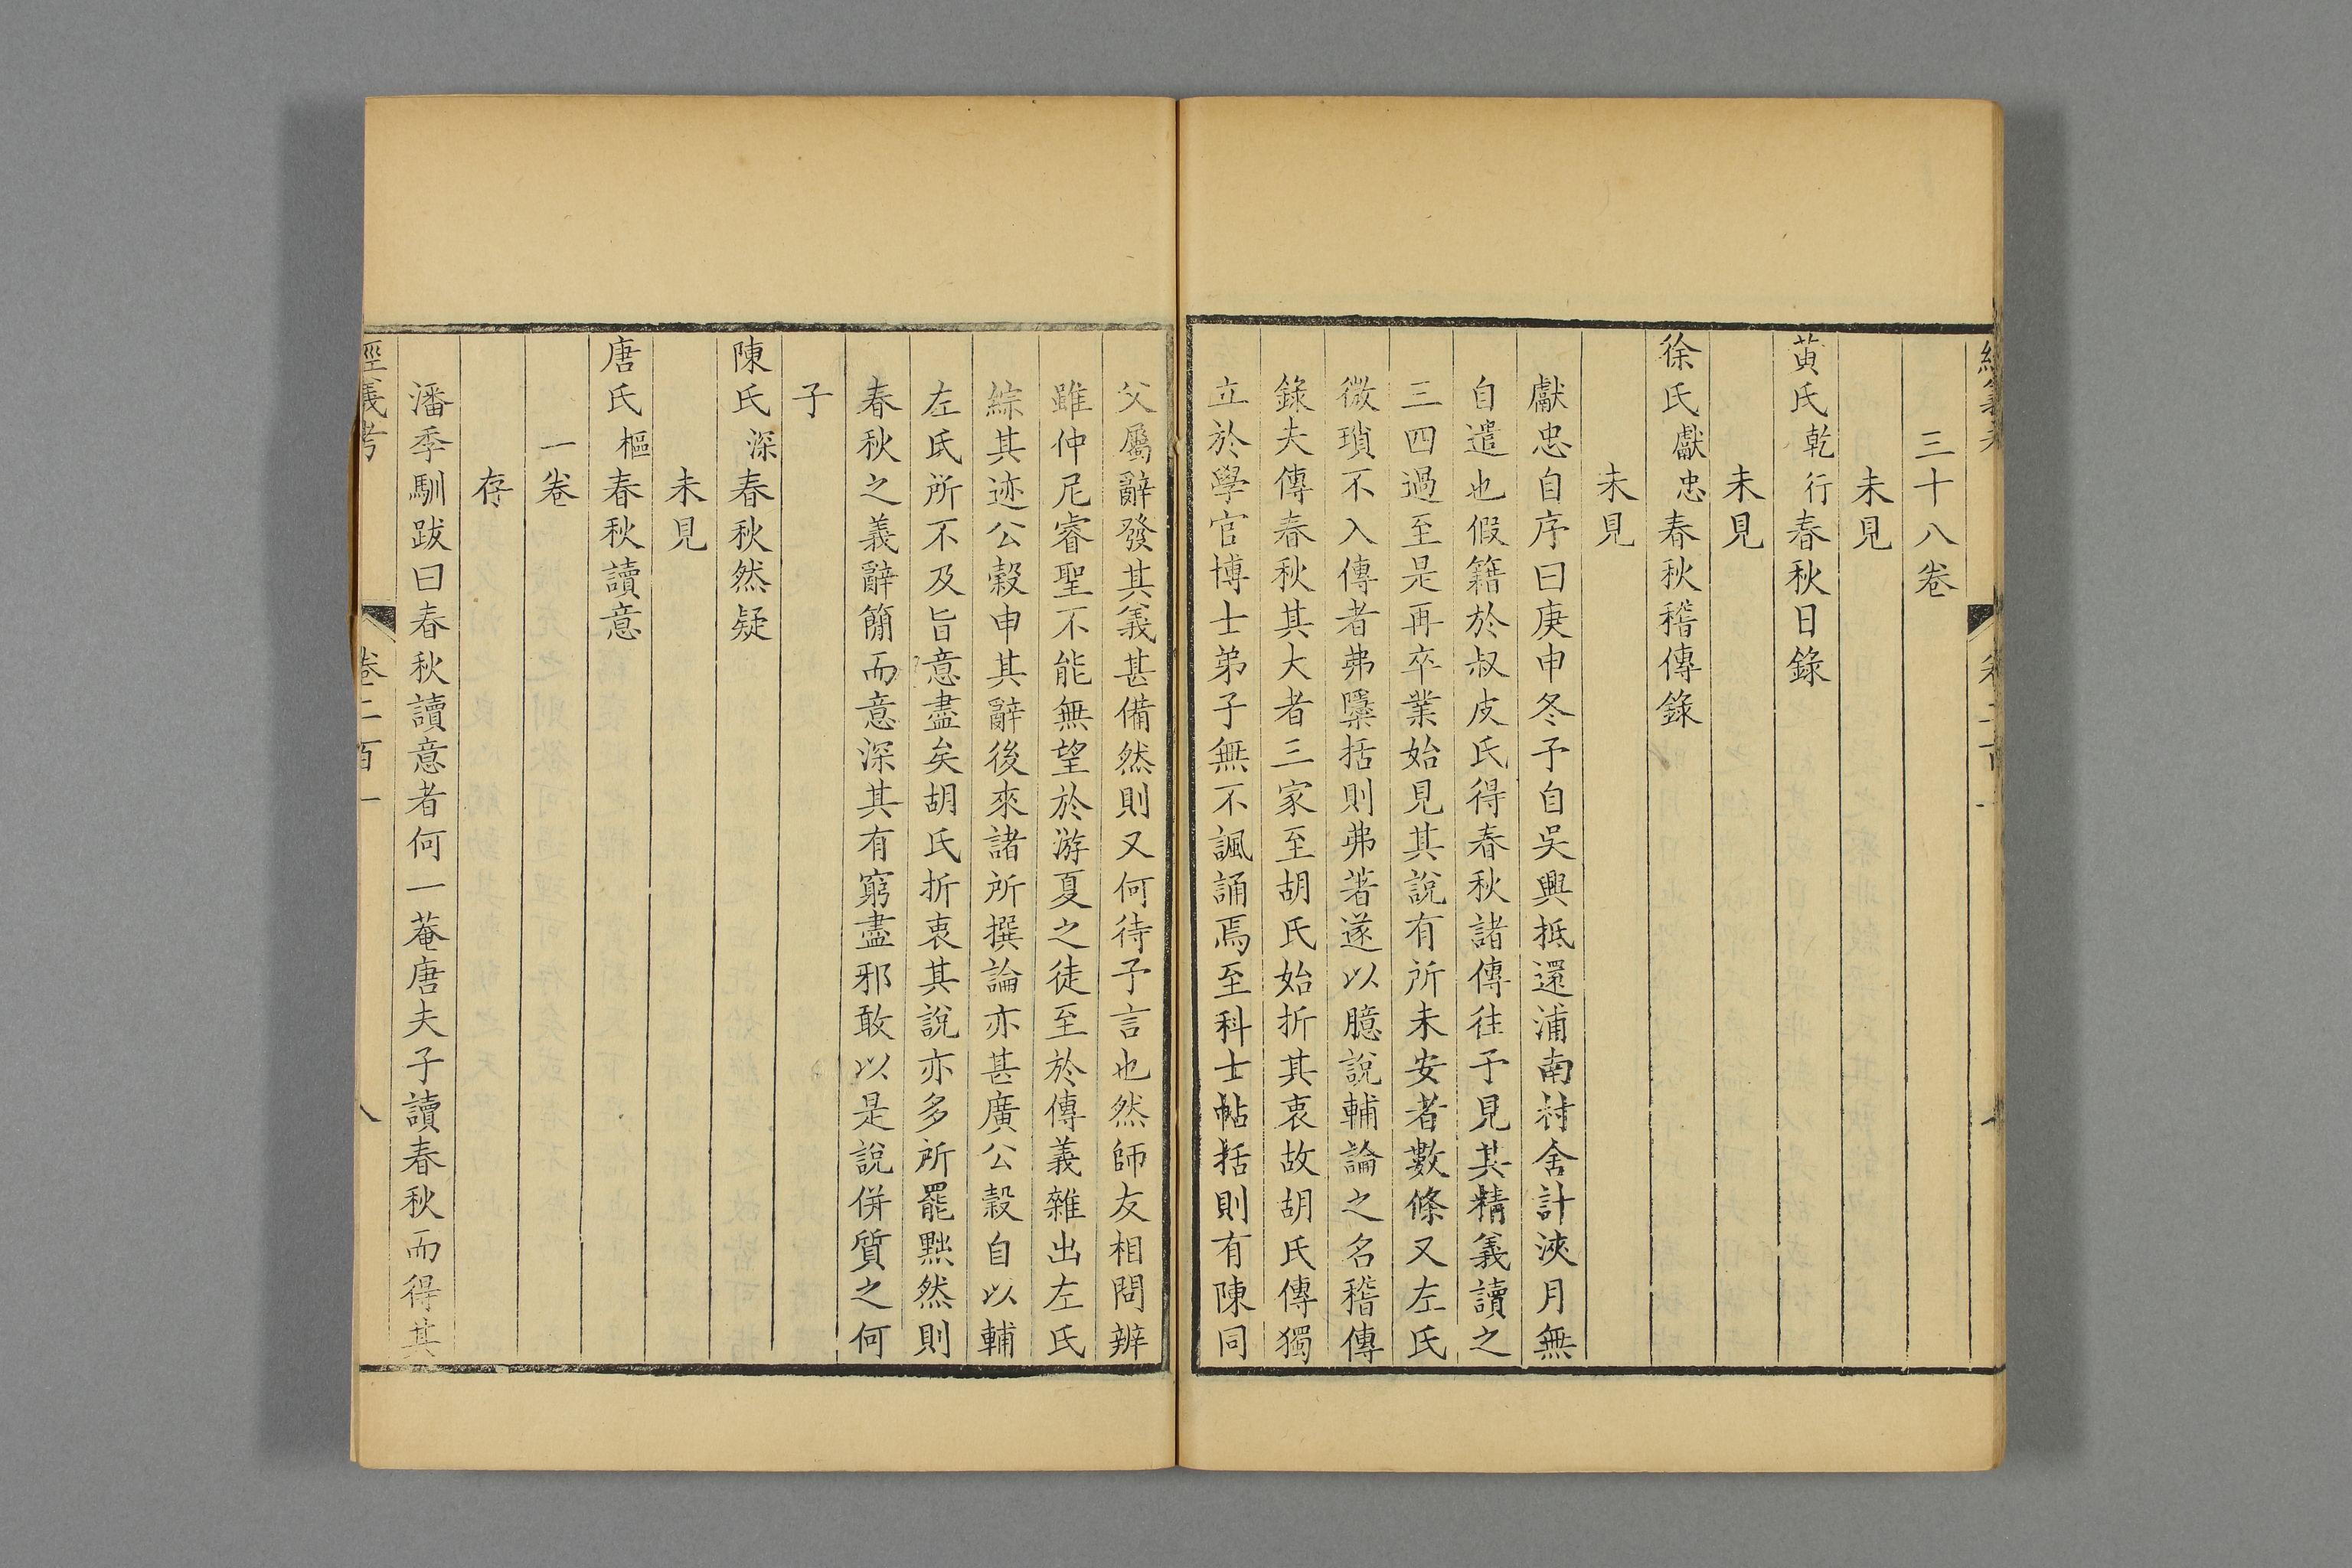 三十八卷
未見
黃氏乾行春秋日錄
未見
徐氏獻忠春秋稽傳錄
未見
獻忠自序曰庚申冬予自吳興抵還浦南村舍計浹月無
自遣也假籍於叔皮氏得春秋諸傳往予見其精義讀之
三四過至是再卒業始見其說有所未安者數條又左氏
微瑣不入傳者弗櫽括則弗著遂以臆說輔論之名稽傳
錄夫傳春秋其大者三家至胡氏始折其衷故胡氏傳獨
立於學官博士弟子無不諷誦焉至科士帖括則有陳同
父屬辭發其義甚備然則又何待予言也然師友相問辨
雖仲尼睿聖不能無望於游夏之徒至於傳義雜出左氏
綜其迹公穀申其辭後來諸所撰論亦甚廣公穀自以輔
左氏所不及旨意盡矣胡氏折衷其說亦多所罷黜然則
春秋之義辭簡而意深其有窮盡邪敢以是說併質之何
子
陳氏深春秋然疑
未見
唐氏樞春秋讀意
一卷
存
潘季馴跋曰春秋讀意者何一菴唐夫子讀春秋而得其
經義考 卷二百一 八